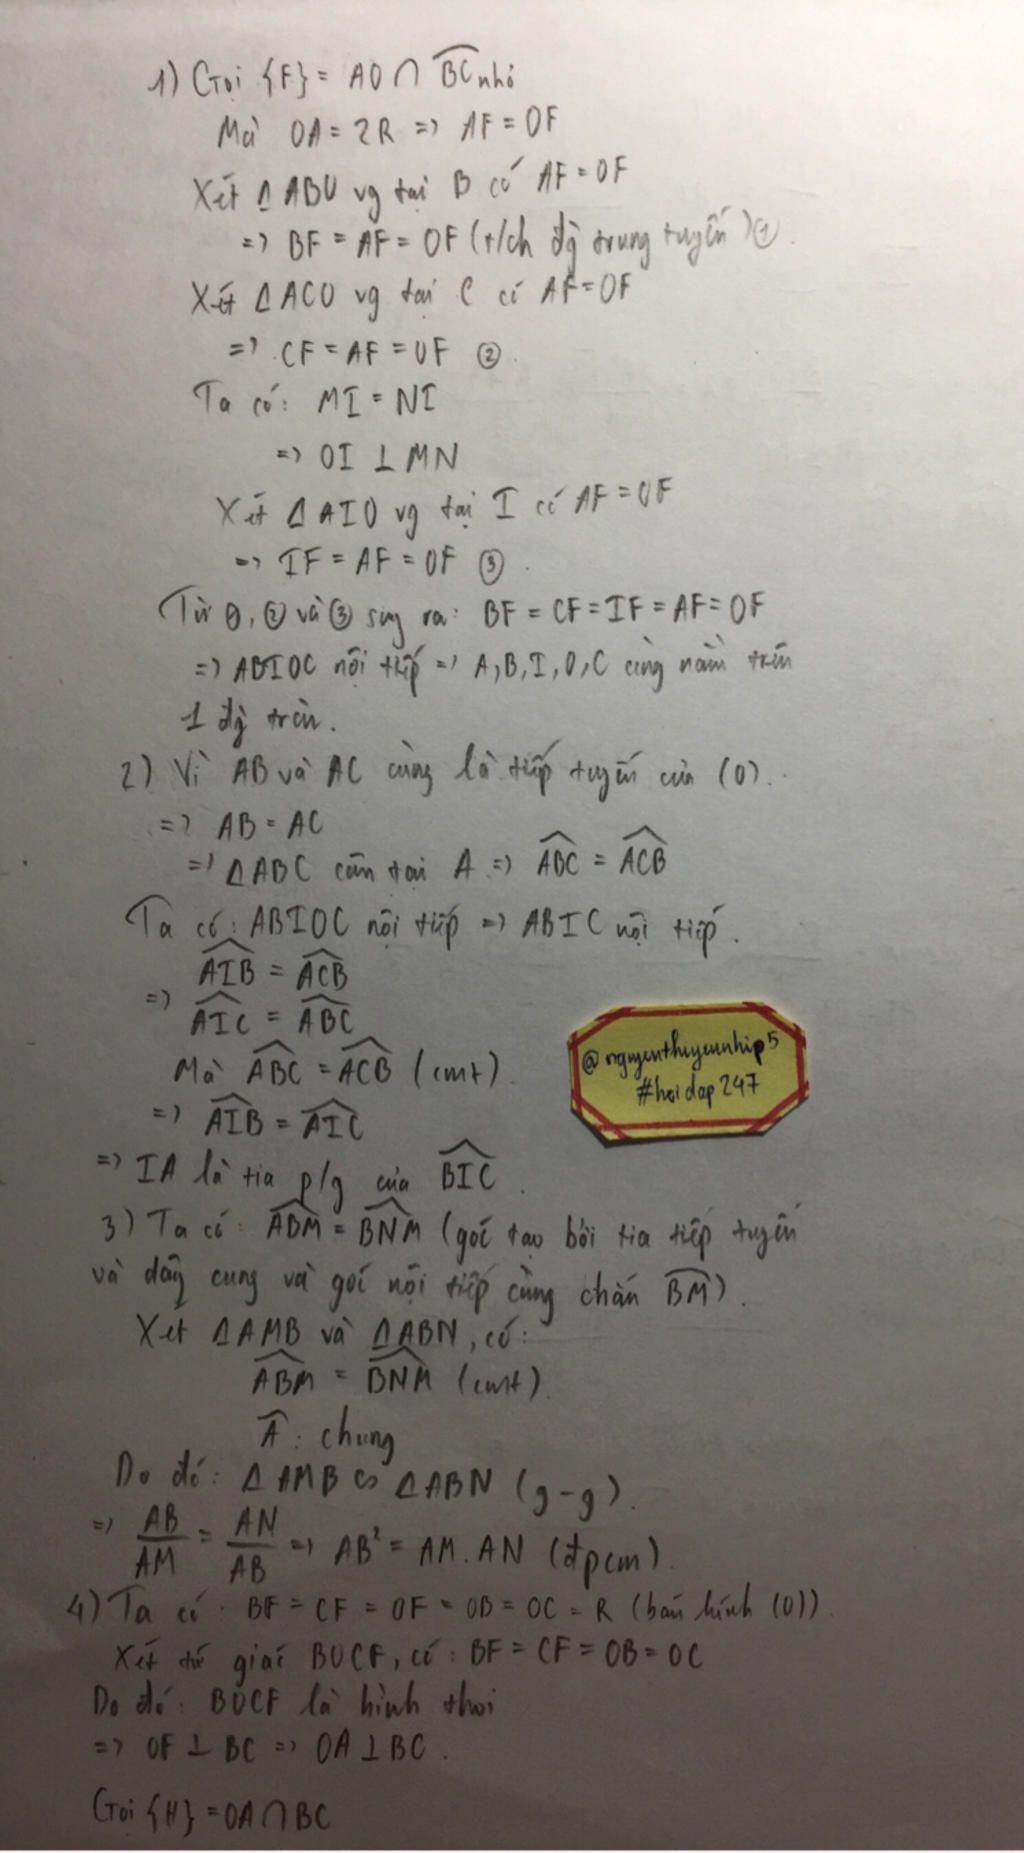 1) Gọi {F} = AO ∩ BC nhỏ
Mà OA = 2R => AF = OF
Xét Δ ABO vg tại B có AF = OF
=> BF = AF = OF (t/ch đg trung tuyến) ①.
Xét Δ ACO vg tại C có AF = OF
=> CF = AF = OF ②.
Ta có: MI = NI
=> OI ⊥ MN
Xét Δ AIO vg tại I có AF = OF
=> IF = AF = OF ③.
Từ ①, ② và ③ suy ra: BF = CF = IF = AF = OF
=> ABIOC nội tiếp => A, B, I, O, C cùng nằm trên
1 đg tròn.
2) Vì AB và AC cùng là tiếp tuyến của (O).
=> AB = AC
=> Δ ABC cân tại A => ABC = ACB
Ta có: ABIOC nội tiếp => ABIC nội tiếp.
AIB = ACB
=>
AIC = ABC
Mà ABC = ACB (cmt)
=> AIB = AIC
=> IA là tia p/g của BIC.
@nguyenthuyeunhip5
#hoidap247
3) Ta có: ABM = BNM (góc tạo bởi tia tiếp tuyến
và dây cung và góc nội tiếp cùng chắn BM).
Xét Δ AMB và Δ ABN, có:
ABM = BNM (cmt).
A : chung
Do đó: Δ AMB ∽ Δ ABN (g-g).
=> AB/AM = AN/AB => AB² = AM . AN (đpcm).
4) Ta có: BF = CF = OF = OB = OC = R (bán kính (O)).
Xét tứ giác BOCF, có: BF = CF = OB = OC
Do đó: BOCF là hình thoi
=> OF ⊥ BC => OA ⊥ BC.
Gọi {H} = OA ∩ BC